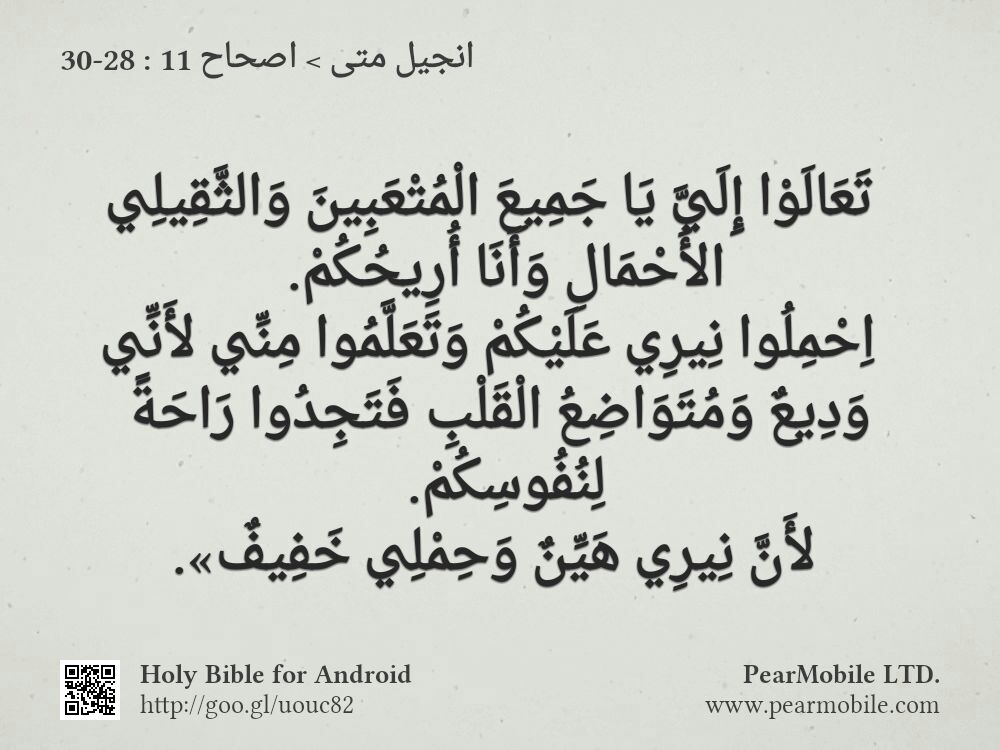 انجيل متى > اصحاح 11 : 28-30
تَعَالَوْا إِلَيَّ يَا جَمِيعَ الْمُتْعَبِينَ وَالثَّقِيلِي
الأَحْمَالِ وَأَنَا أُرِيحُكُمْ.
اِحْمِلُوا نِيرِي عَلَيْكُمْ وَتَعَلَّمُوا مِنِّي لأَنِّي
وَدِيعٌ وَمُتَوَاضِعُ الْقَلْبِ فَتَجِدُوا رَاحَةً
لِنُفُوسِكُمْ.
لأَنَّ نِيرِي هَيِّنٌ وَحِمْلِي خَفِيفٌ».
Holy Bible for Android
http://goo.gl/uouc82
PearMobile LTD.
www.pearmobile.com